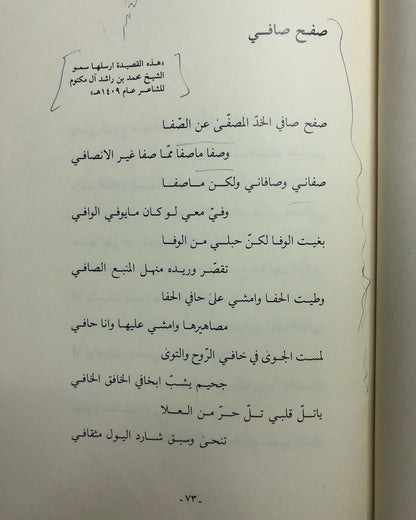 صفح صافـي
«هذه القصيدة ارسلها سمو
الشيخ محمد بن راشد آل مكتوم
للشاعر عام ١٤٠٩هـ»
صفح صافي الخدّ المصفّىٰ عن الصّفا
وصفا ماصفا ممّا صفا غير الانصافي
صفاني وصافاني ولكن ماصفا
وفيّ معي لو كان مايوفي الوافي
بغيت الوفا لكنّ حبلي من الوفا
تقصّر وريده منهل المنبع الصافي
وطيت الحفا وامشي على حافي الحفا
مصاهيرها وامشي عليها وانا حافي
لمست الجوى في خافي الرّوح والتوى
جحيم يشبّ ابخافي الخافق الخافي
ياتلّ قلبي تلّ حرّ من العـلا
تنحىٰ وسبق شارد اليول مثقافي
-٧٣-